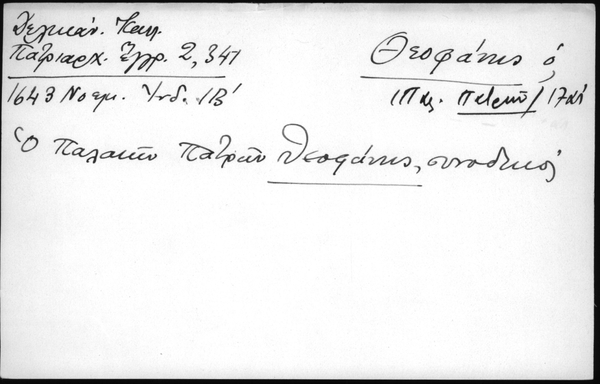 Δελικάν. Καλ.
Πατριαρχ. Ἔγγρ. 2, 341
1643 Νοεμ. Ἰνδ. ΙΒ'
Θεοφάνης ὁ,
(Πα. Πατρῶν) 17 αἰ
Ὁ Παλαιῶν Πατρῶν Θεοφάνης, συνοδικός